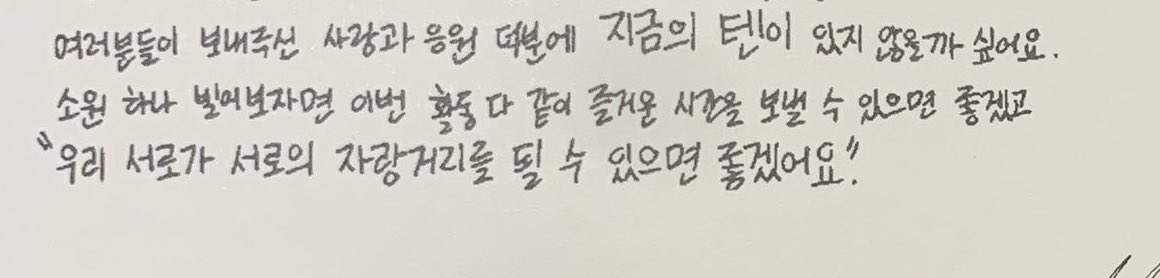 여러분들이 보내주신 사랑과 응원 덕분에 지금의 텐이 있지 않을까 싶어요.
소원 하나 빌어보자면 이번 활동 다 같이 즐거운 시간을 보낼 수 있으면 좋겠고
"우리 서로가 서로의 자랑거리를 될 수 있으면 좋겠어요".